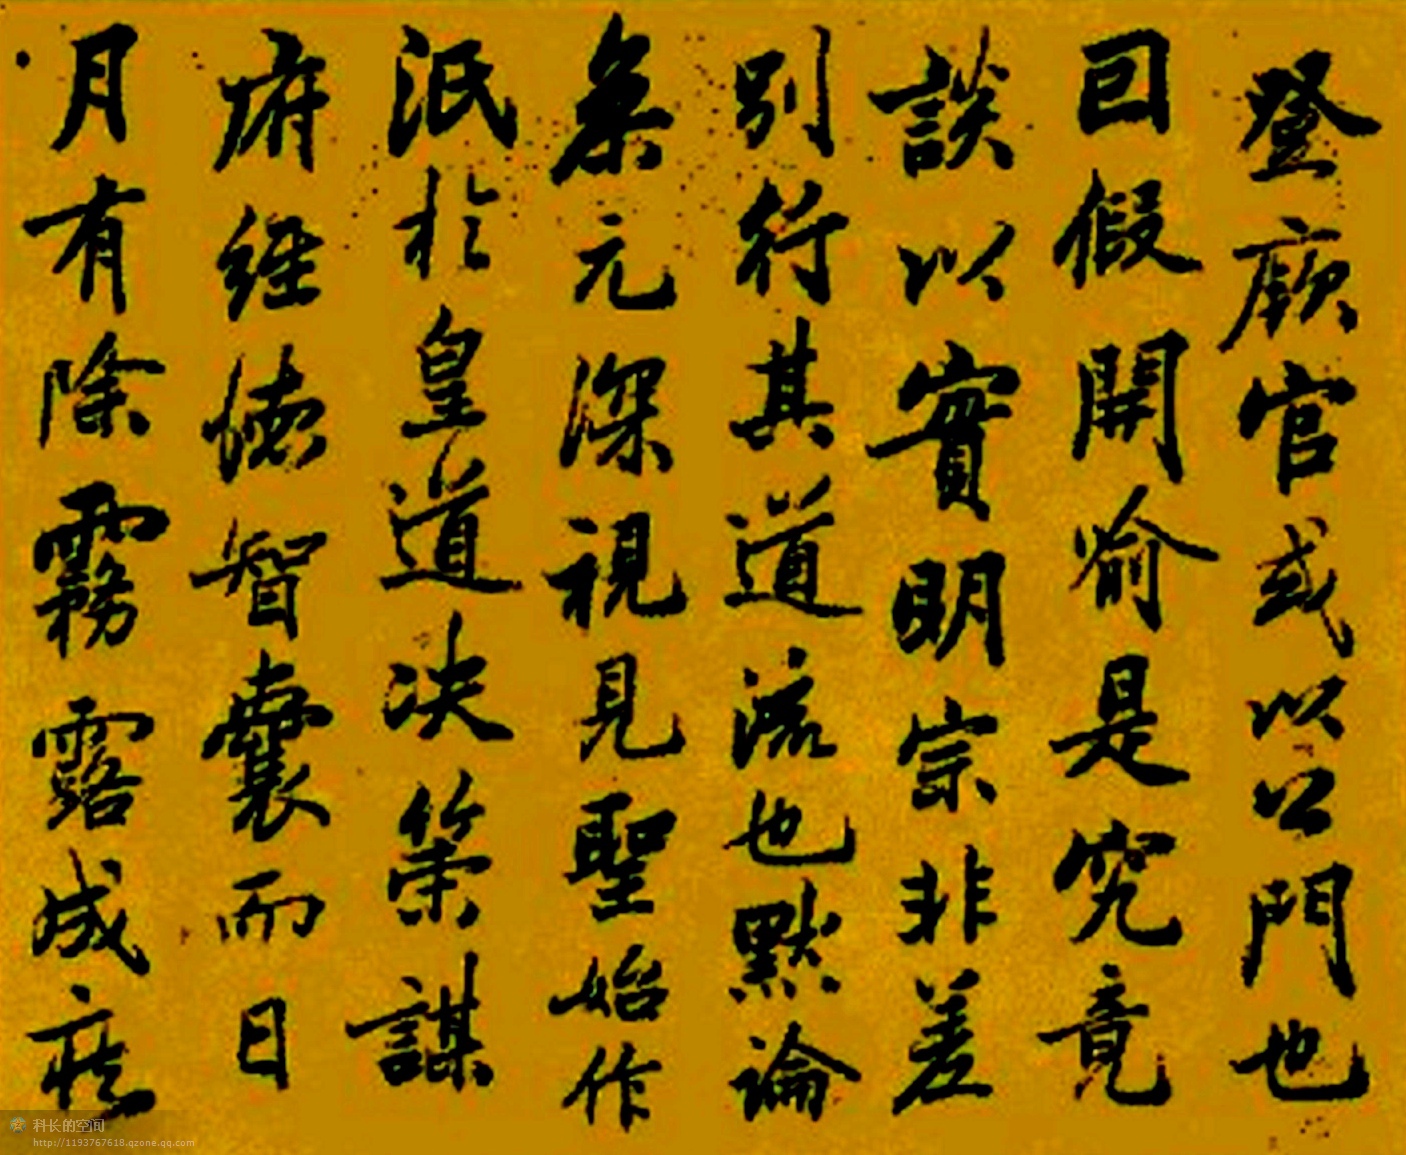 登廊官或以公門也
回假開喻是究竟
談以實明宗非差
別行其道流也默論
條元深視見聖始作
派於皇道決策謀
府經德智囊而日
月有除霧露成疾
科长的空间
http://1193767618.qzone.qq.com